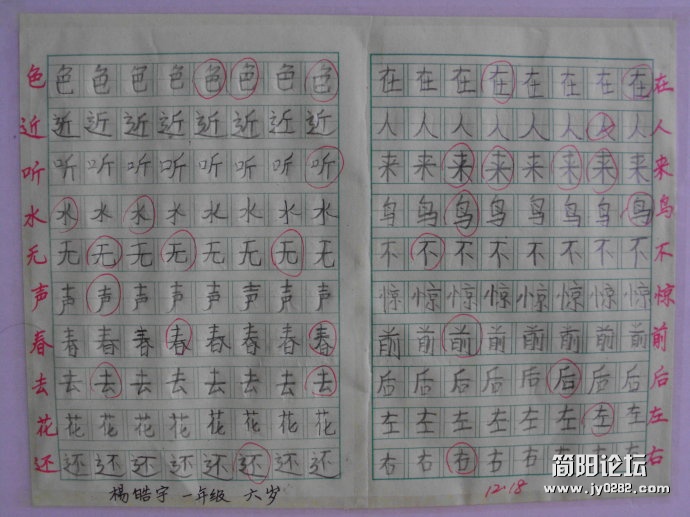 色 色 色 色 色 色 色 色 色
近 近 近 近 近 近 近 近 近
听 听 听 听 听 听 听 听 听
水 水 水 水 水 水 水 水 水
无 无 无 无 无 无 无 无 无
声 声 声 声 声 声 声 声 声
春 春 春 春 春 春 春 春 春
去 去 去 去 去 去 去 去 去
花 花 花 花 花 花 花 花 花
还 还 还 还 还 还 还 还 还
楊皓宇 一年级 六岁
在 在 在 在 在 在 在 在 在
人 人 人 人 人 人 人 人 人
来 来 来 来 来 来 来 来 来
鸟 鸟 鸟 鸟 鸟 鸟 鸟 鸟 鸟
不 不 不 不 不 不 不 不 不
惊 惊 惊 惊 惊 惊 惊 惊 惊
前 前 前 前 前 前 前 前 前
后 后 后 后 后 后 后 后 后
左 左 左 左 左 左 左 左 左
右 右 右 右 右 右 右 右 右
12.18
简阳论坛
www.jy0282.com